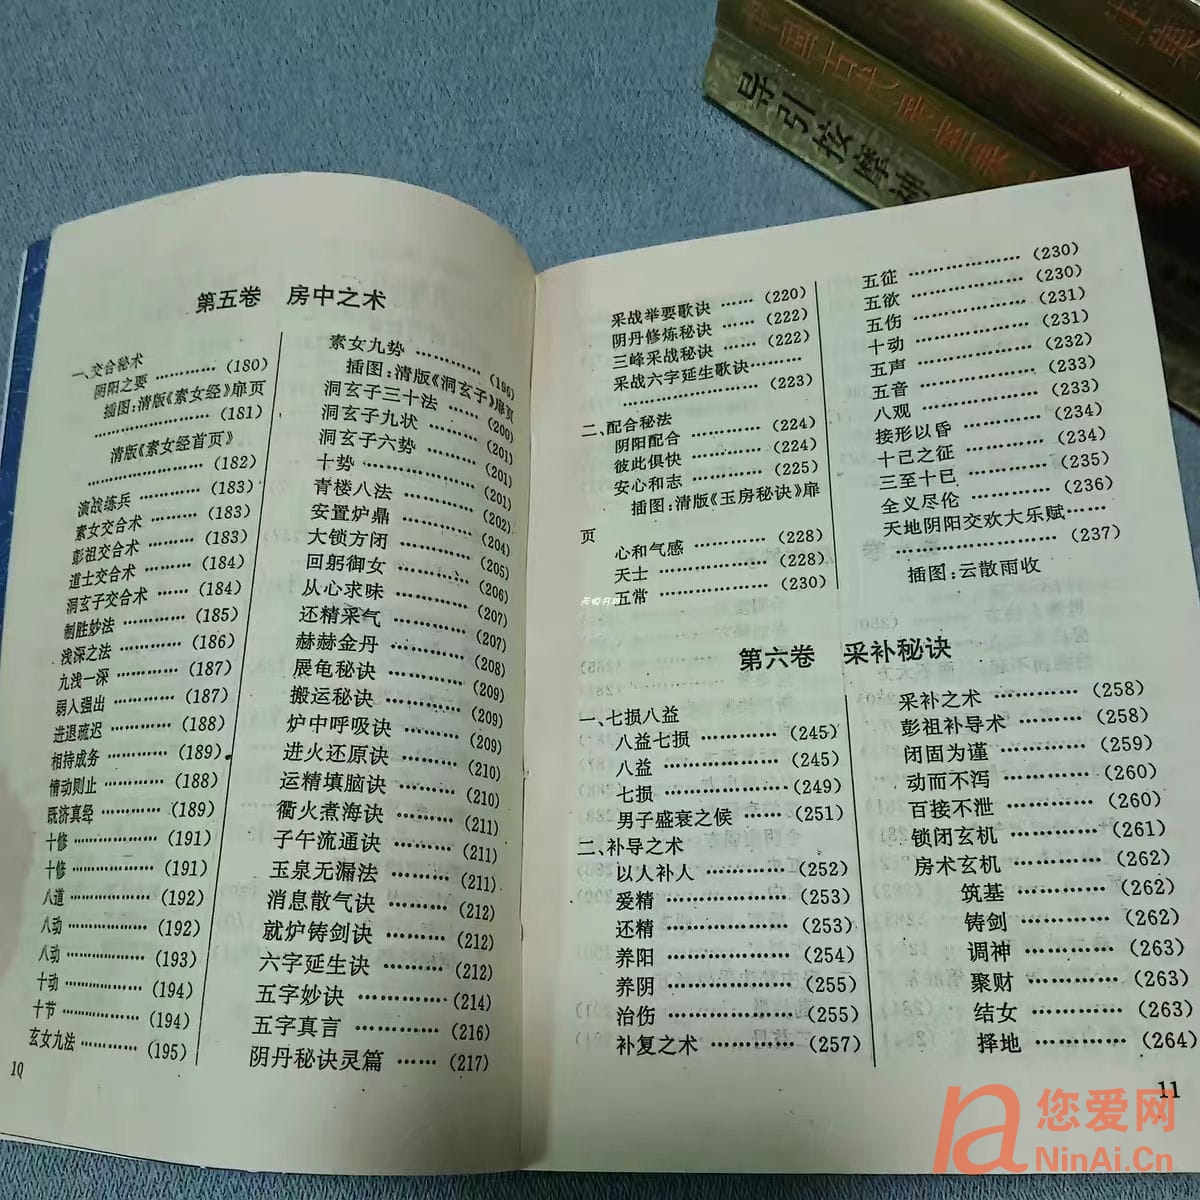 导引按摩神
第五卷 房中之术
一、交合秘术
阴阳之要 ………… (180)
插图:清版《素女经》扉页
………………… (181)
清版《素女经首页》
………………… (182)
演战练兵 ………… (183)
素女交合术 ……… (183)
彭祖交合术 ……… (183)
道士交合术 ……… (184)
洞玄子交合术 …… (184)
制胜妙法 ………… (185)
浅深之法 ………… (186)
九浅一深 ………… (187)
弱入强出 ………… (187)
进退疏迟 ………… (188)
相持成务 ………… (189)
情动则止 ………… (188)
既济真经 ………… (189)
十修 ……………… (191)
十修 ……………… (191)
八道 ……………… (192)
八动 ……………… (192)
八动 ……………… (193)
十动 ……………… (194)
十节 ……………… (194)
玄女九法 ………… (195)
素女九势 ………… (196)
插图:清版《洞玄子》扉页
洞玄子三十法 …… (200)
洞玄子九状 ……… (201)
洞玄子六势 ……… (201)
十势 ……………… (201)
青楼八法 ………… (202)
安置炉鼎 ………… (204)
大锁方闭 ………… (205)
回躬御女 ………… (206)
从心求味 ………… (207)
还精采气 ………… (207)
赫赫金丹 ………… (208)
展龟秘诀 ………… (209)
搬运秘诀 ………… (209)
炉中呼吸诀 ……… (209)
进火还原诀 ……… (210)
运精填脑诀 ……… (210)
衢火煮海诀 ……… (211)
子午流通诀 ……… (211)
玉泉无漏法 ……… (211)
消息散气诀 ……… (212)
就炉铸剑诀 ……… (212)
六字延生诀 ……… (212)
五字妙诀 ………… (214)
五字真言 ………… (216)
阴丹秘诀灵篇 …… (217)
10
采战举要歌诀 …… (220)
阴丹修炼秘诀 …… (222)
三峰采战秘诀 …… (222)
采战六字延生歌诀……
………………… (223)
二、配合秘法
阴阳配合 ………… (224)
彼此俱快 ………… (224)
安心和志 ………… (225)
插图:清版《玉房秘诀》扉
页
心和气感 ………… (228)
天士 ……………… (228)
五常 ……………… (230)
五征 ……………… (230)
五欲 ……………… (230)
五伤 ……………… (231)
十动 ……………… (231)
五声 ……………… (232)
五音 ……………… (233)
八观 ……………… (233)
接形以昏 ………… (234)
十已之征 ………… (234)
三至十已 ………… (235)
全义尽伦 ………… (236)
天地阴阳交欢大乐赋……
………………… (237)
插图:云散雨收
第六卷 采补秘诀
一、七损八益
八益七损 ………… (245)
八益 ……………… (245)
七损 ……………… (249)
男子盛衰之候 …… (251)
二、补导之术
以人补人 ………… (252)
爱精 ……………… (253)
还精 ……………… (253)
养阳 ……………… (254)
养阴 ……………… (255)
治伤 ……………… (255)
补复之术 ………… (257)
采补之术 ………… (258)
彭祖补导术 ……… (258)
闭固为谨 ………… (259)
动而不泻 ………… (260)
百接不泄 ………… (260)
锁闭玄机 ………… (261)
房术玄机 ………… (262)
筑基 ……………… (262)
铸剑 ……………… (262)
调神 ……………… (263)
聚财 ……………… (263)
结女 ……………… (263)
择地 ……………… (264)
11
您爱网
NinAi.Cn